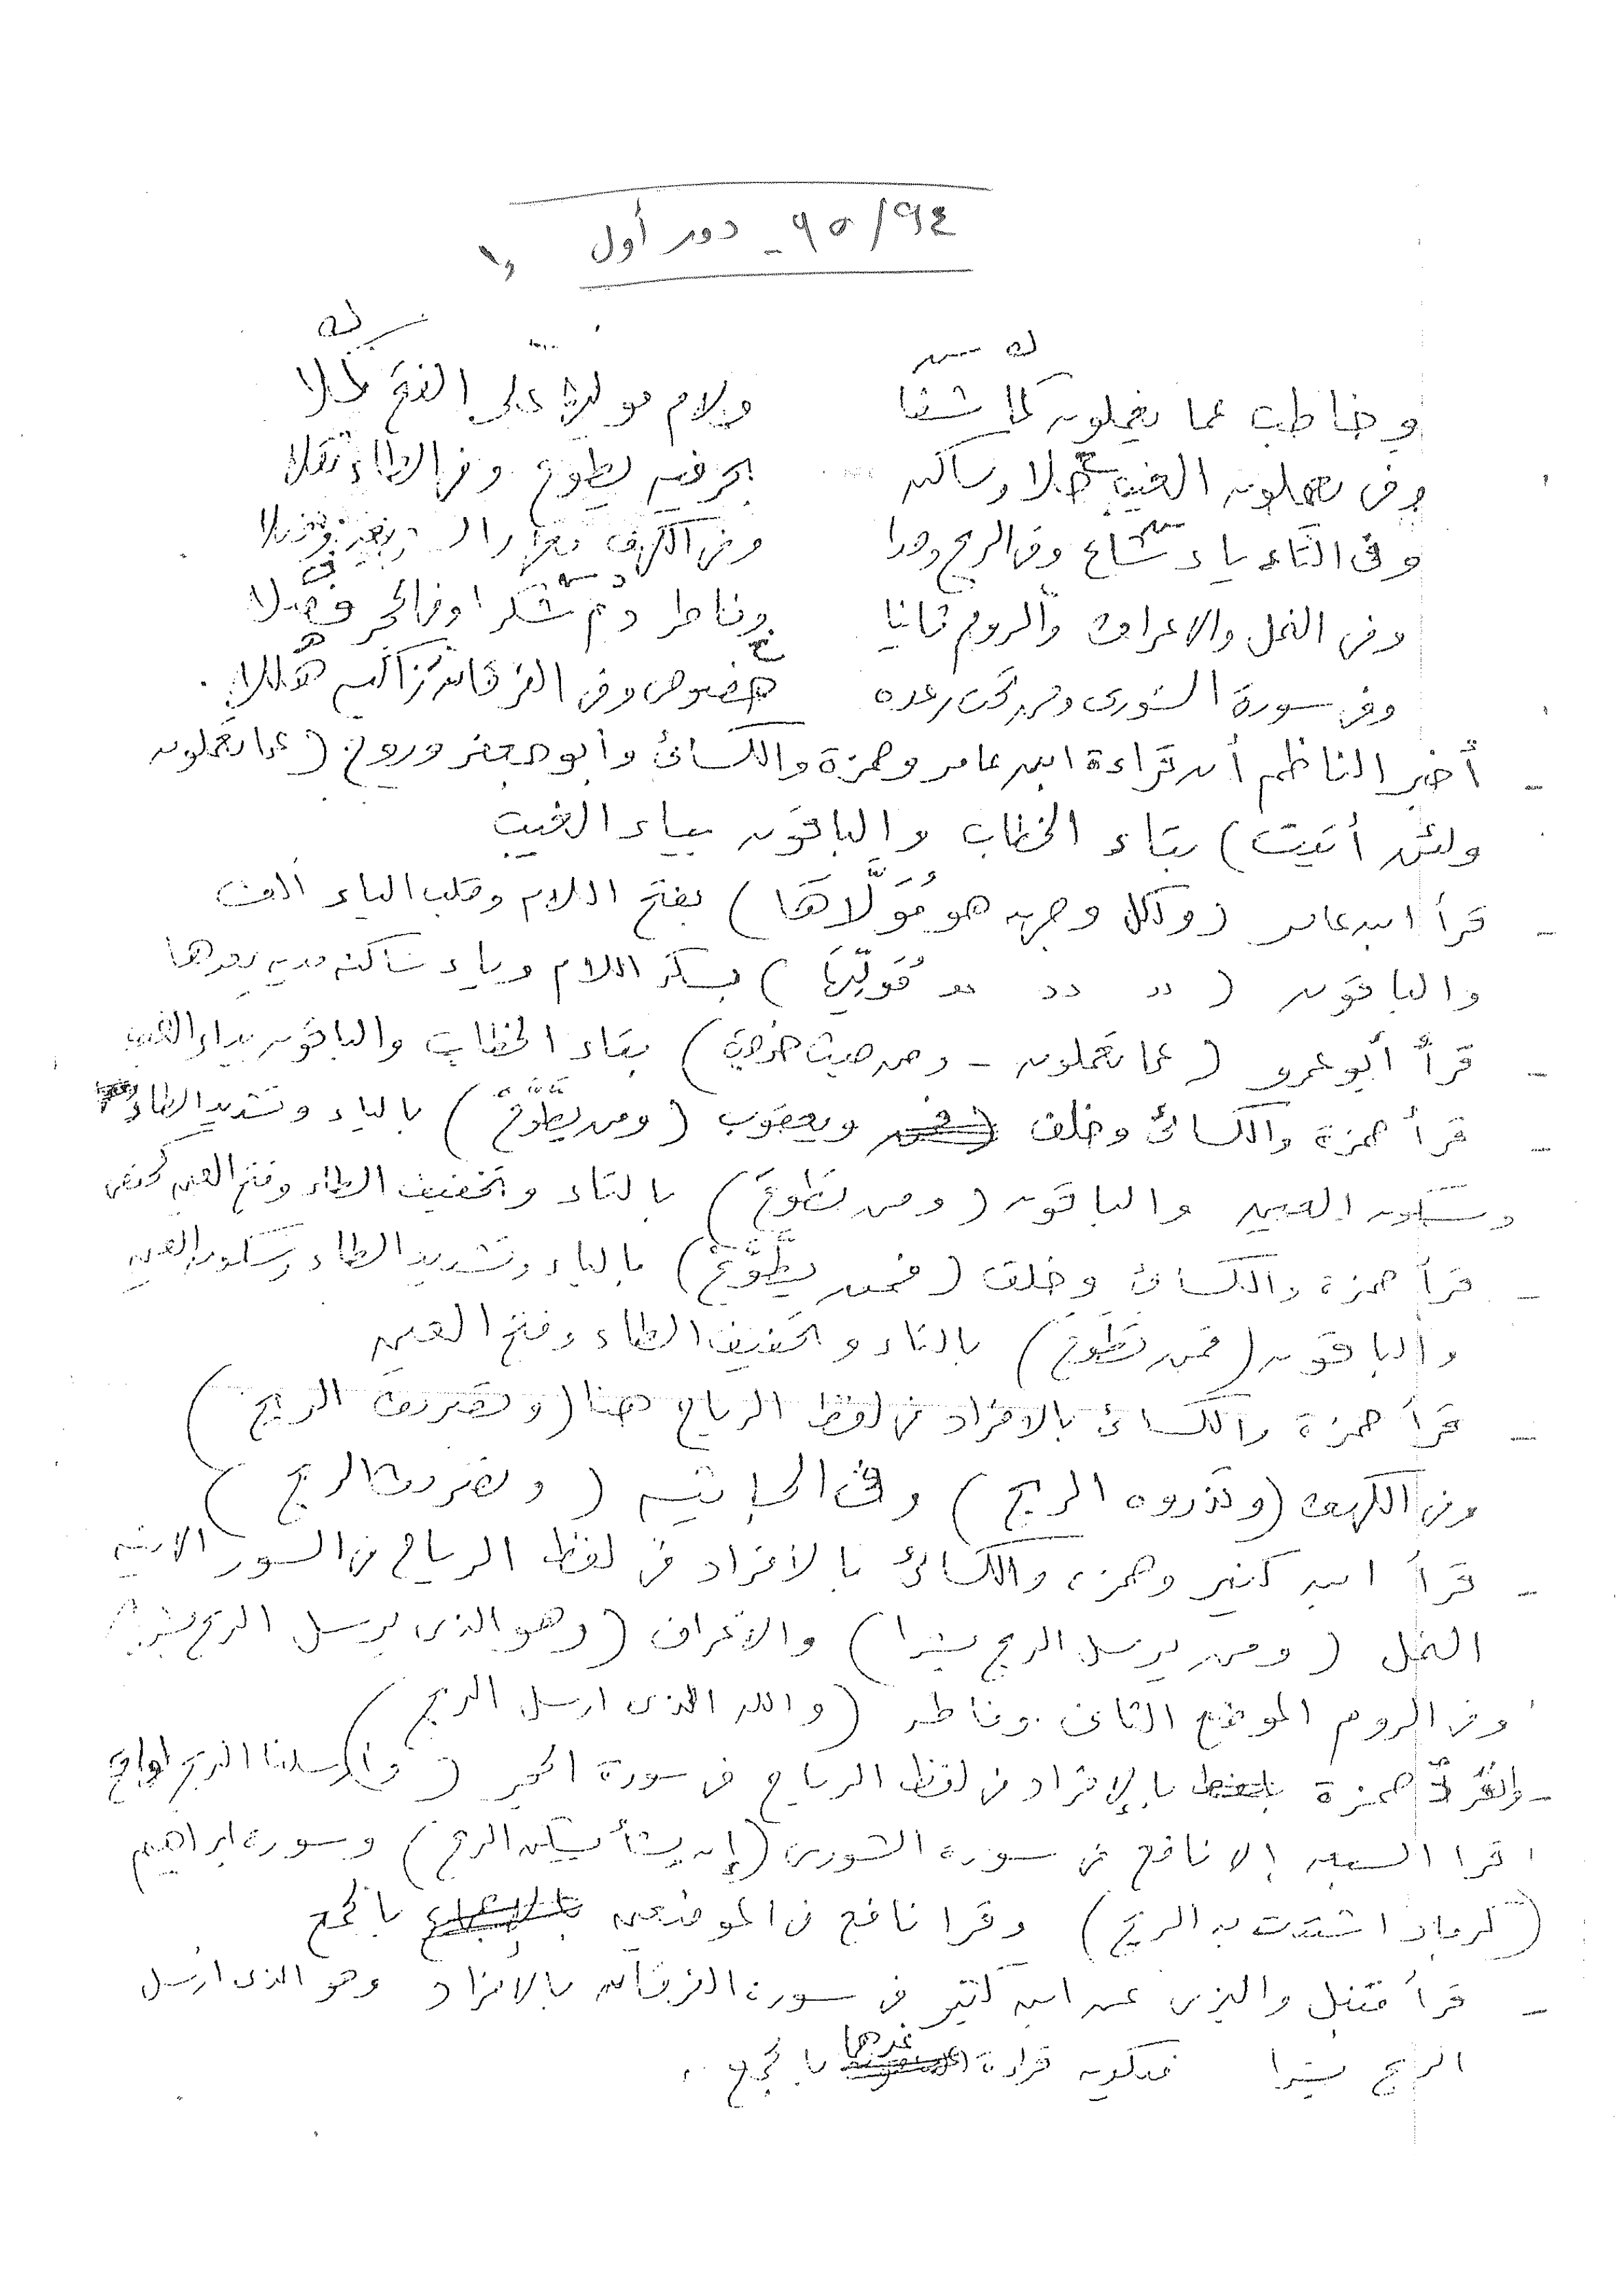 ٩٥/٩٤ - دور أول
وخاطب عما يعملون كما شفا ولام موليها على الفتح كملا
وفى يعملون الغيب حلا وساكن بحرفيه يطوع وفى الطاء ثقلا
وفى التاء ياء شاع وفى الريح وحدا وفى الكهف معها والشريعة وصلا
وفى النمل والاعراف والروم ثانيا وفاطر دم شكرا وفى الحجر فصلا
وفى سورة الشورى ومن تحت رعده خصوص وفى الفرقان زاكيه هللا
- أخبر الناظم أن قراءة ابن عامر وحمزة والكسائى وأبو جعفر وروح (عما تعملون
ولئن أتيت) بتاء الخطاب والباقون بياء الغيب
- قرأ ابن عامر (ولكل وجهه هو مُوَلَّاهَا) بفتح اللام وقلب الياء ألف
والباقون ( ״ ״ ״ مُوَلِّيهَا) بكسر اللام وياء ساكنه مديه بعدها
- قرأ أبو عمرو (عما تعملون - ومن حيث خرجت) بتاء الخطاب والباقون بياء الغيب
- قرأ حمزة والكسائى وخلف ويعقوب (ومن يطَّوَّعْ) بالياء وتشديد الطاء
وسكون العين والباقون (ومن تطوعَ) بالتاء وتخفيف الطاء وفتح العين كحفص
- قرأ حمزة والكسائى وخلف (فمن يطَّوَّعْ) بالياء وتشديد الطاء وسكون العين
والباقون (فمن تطَوعَ) بالتاء وتخفيف الطاء وفتح العين
- قرأ حمزة والكسائى بالافراد فى لفظ الرياح هنا (وتصريف الريح)
وفى الكهف (وتذروه الريح) وفى الجاثيه (وتصريف الريح)
- قرأ ابن كثير وحمزه والكسائى بالافراد فى لفظ الرياح فى السور الاتيه
النمل (ومن يرسل الريح بشرا) والاعراف (وهو الذى يرسل الريح بشرا)
وفى الروم الموضع الثانى وفاطر (والله الذى ارسل الريح)
- وانفرد حمزة بالإفراد فى لفظ الرياح فى سورة الحجر (وأرسلنا الريح لواقح
قرا السبعه إلا نافع فى سورة الشورى (إن يشأ يسكن الريح) وسورة ابراهيم
(كرماد اشتدت به الريح) وقرا نافع فى الموضعين بالجمع
- قرأ قنبل والبزى عن ابن كثير فى سورة الفرقان بالأفراد وهو الذى ارسل
الريح بشرا فتكون قراءة غيرهما بالجمع .